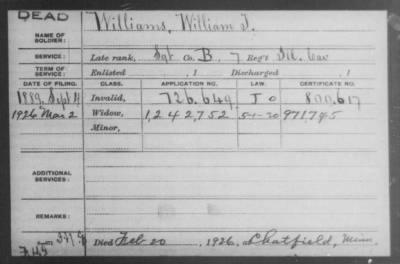 DEAD
NAME OF SOLDIER: Williams, William J.
SERVICE: Late rank, Sgt Co. B, 7 Reg't Ill. Cav
TERM OF SERVICE: Enlisted , 1 Discharged , 1
DATE OF FILING. CLASS. APPLICATION NO. LAW. CERTIFICATE NO.
1889 Sept 4 Invalid, 726.649 J O 800.617
1926 Mar 2 Widow, 1,242,752 5-1-20 971,745
Minor,
ADDITIONAL SERVICES:
REMARKS:
Died Feb 20, 1926, at Chatfield, Minn.